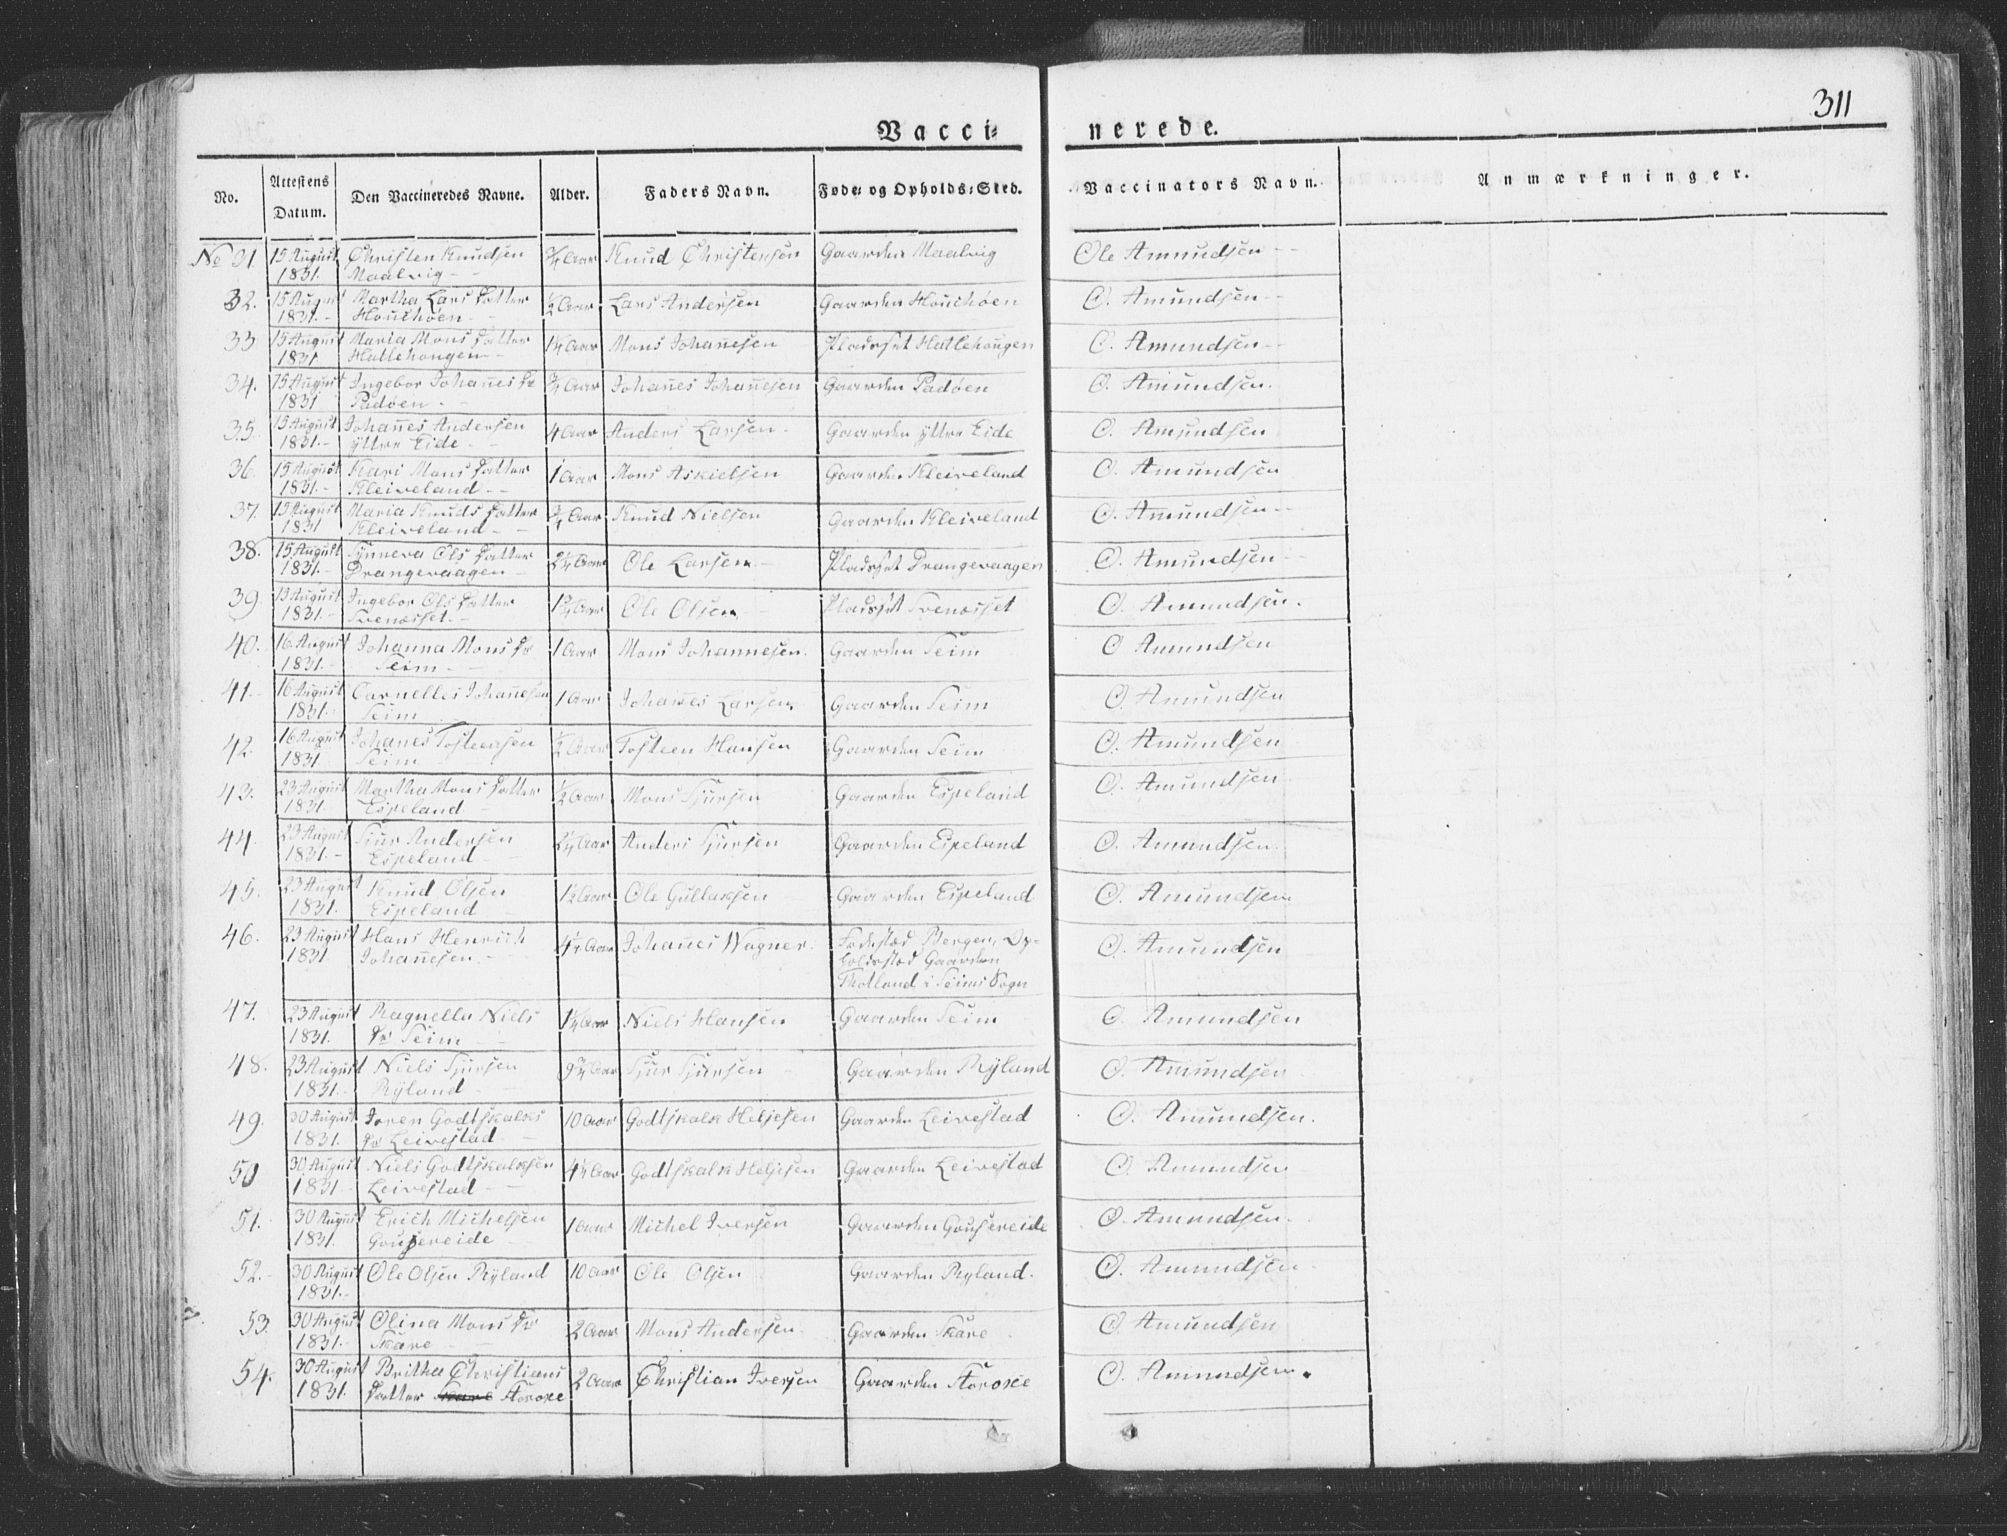 311
Vacci- nerede.
No. Attestens Datum. Den Vaccineredes Navne. Alder. Faders Navn. Føde- og Opholds-Sted. Vaccinators Navn. Anmærkninger.
No 31. 15 August 1831. Christen Knudsen Maalvig 3/4 Aar Knud Christensen Gaarden Maalvig Ole Amundsen
32. 15 August 1831. Martha Lars Datter Houchøen 1/2 Aar Lars Andersen Gaarden Houchøen O. Amundsen
33 15 August 1831 Maria Mons Datter Hatlehougen 1 1/4 Aar Mons Johannesen Pladset Hatlehougen O. Amundsen
34. 15 August 1831 Ingebor Johannes Dr Padøen 3/4 Aar Johannes Johannesen Gaarden Padøen O. Amundsen.
35. 15 August 1831. Johannes Andersen ÿttre Eide 4 Aar Anders Larsen Gaarden ÿttre Eide O. Amundsen
36. 15 August 1831. Kari Mons Datter Kleiveland 1 Aar Mons Askielsen Gaarden Kleiveland O. Amundsen
37. 15 August 1831 Maria Knuds Datter Kleiveland 3/4 Aar Knud Nielsen Gaarden Kleiveland O. Amundsen
38. 15 August 1831. Synneva Ols Datter Drangevaagen 2 1/4 Aar Ole Larsen Pladset Drangevaagen O. Amundsen
39. 15 August 1831. Ingebor Ols Datter Svenæsset. Aar Ole Olsen Pladset Svenæsset O. Amundsen.
40. 16 August 1831. Johanna Mons Dr Seim 1 Aar Mons Johannesen. Gaarden Seim O Amundsen
41. 16 August 1831. Carnelles Johannesen Seim 1 Aar Johannes Larsen Gaarden Seim O. Amundsen
42. 16 August 1831 Johanes Tosteensen Seim 1/2 Aar Tosteen Hansen Gaarden Seim O. Amundsen
43. 23 August 1831. Martha Mons Datter Espeland 1/2 Aar Mons Sjursen Gaarden Espeland O. Amundsen
44. 23 August 1831. Sjur Andersen Espeland 2 1/4 Aar Anders Sjursen Gaarden Espeland O. Amundsen.
45. 23 August 1831. Knud Olsen Espeland 1 1/2 Aar Ole Gullaksen Gaarden Espeland O. Amundsen
46. 23 August 1831 Hans Henrich Johannesen 4 1/2 Aar Johannes Wagner. Fødested Bergen, Op-
holdssted Gaarden
i Seims Sogn O. Amundsen
47. 23 August 1831. Ragnella Niels Dr Seim 1 1/4 Aar Niels Hansen Gaarden Seim O. Amundsen
48. 23 August 1831. Niels Sjursen Rÿland 9 3/4 Aar Sjur Sjursen Gaarden Rÿland O. Amundsen
49. 30 August 1831. Joren Godtskalks Dr Leivestad 10 Aar Godtskalk Heljesen Gaarden Leivestad O. Amundsen.
50 30 August 1831 Niels Godtskalksen Leivestad 4 1/2 Aar Godtskalk Heljesen Gaarden Leivestad O. Amundsen
51. 30 August 1831 Erich Michelsen Gousereide 1 Aar Michel Iversen Gaarden Gousereide O. Amundsen.
52. 30 August 1831. Ole Olsen Rÿland 10 Aar Ole Olsen Gaarden Rÿland. O. Amundsen
53. 30 August 1831. Olina Mons Dr Skare 2 Aar Mons Andersen. Gaarden Skare O. Amundsen
54. 30 August 1831. Britha Christians Datter Skare Storoxe 2 Aar Christian Iversen Gaarden Storoxe O. Amundsen.